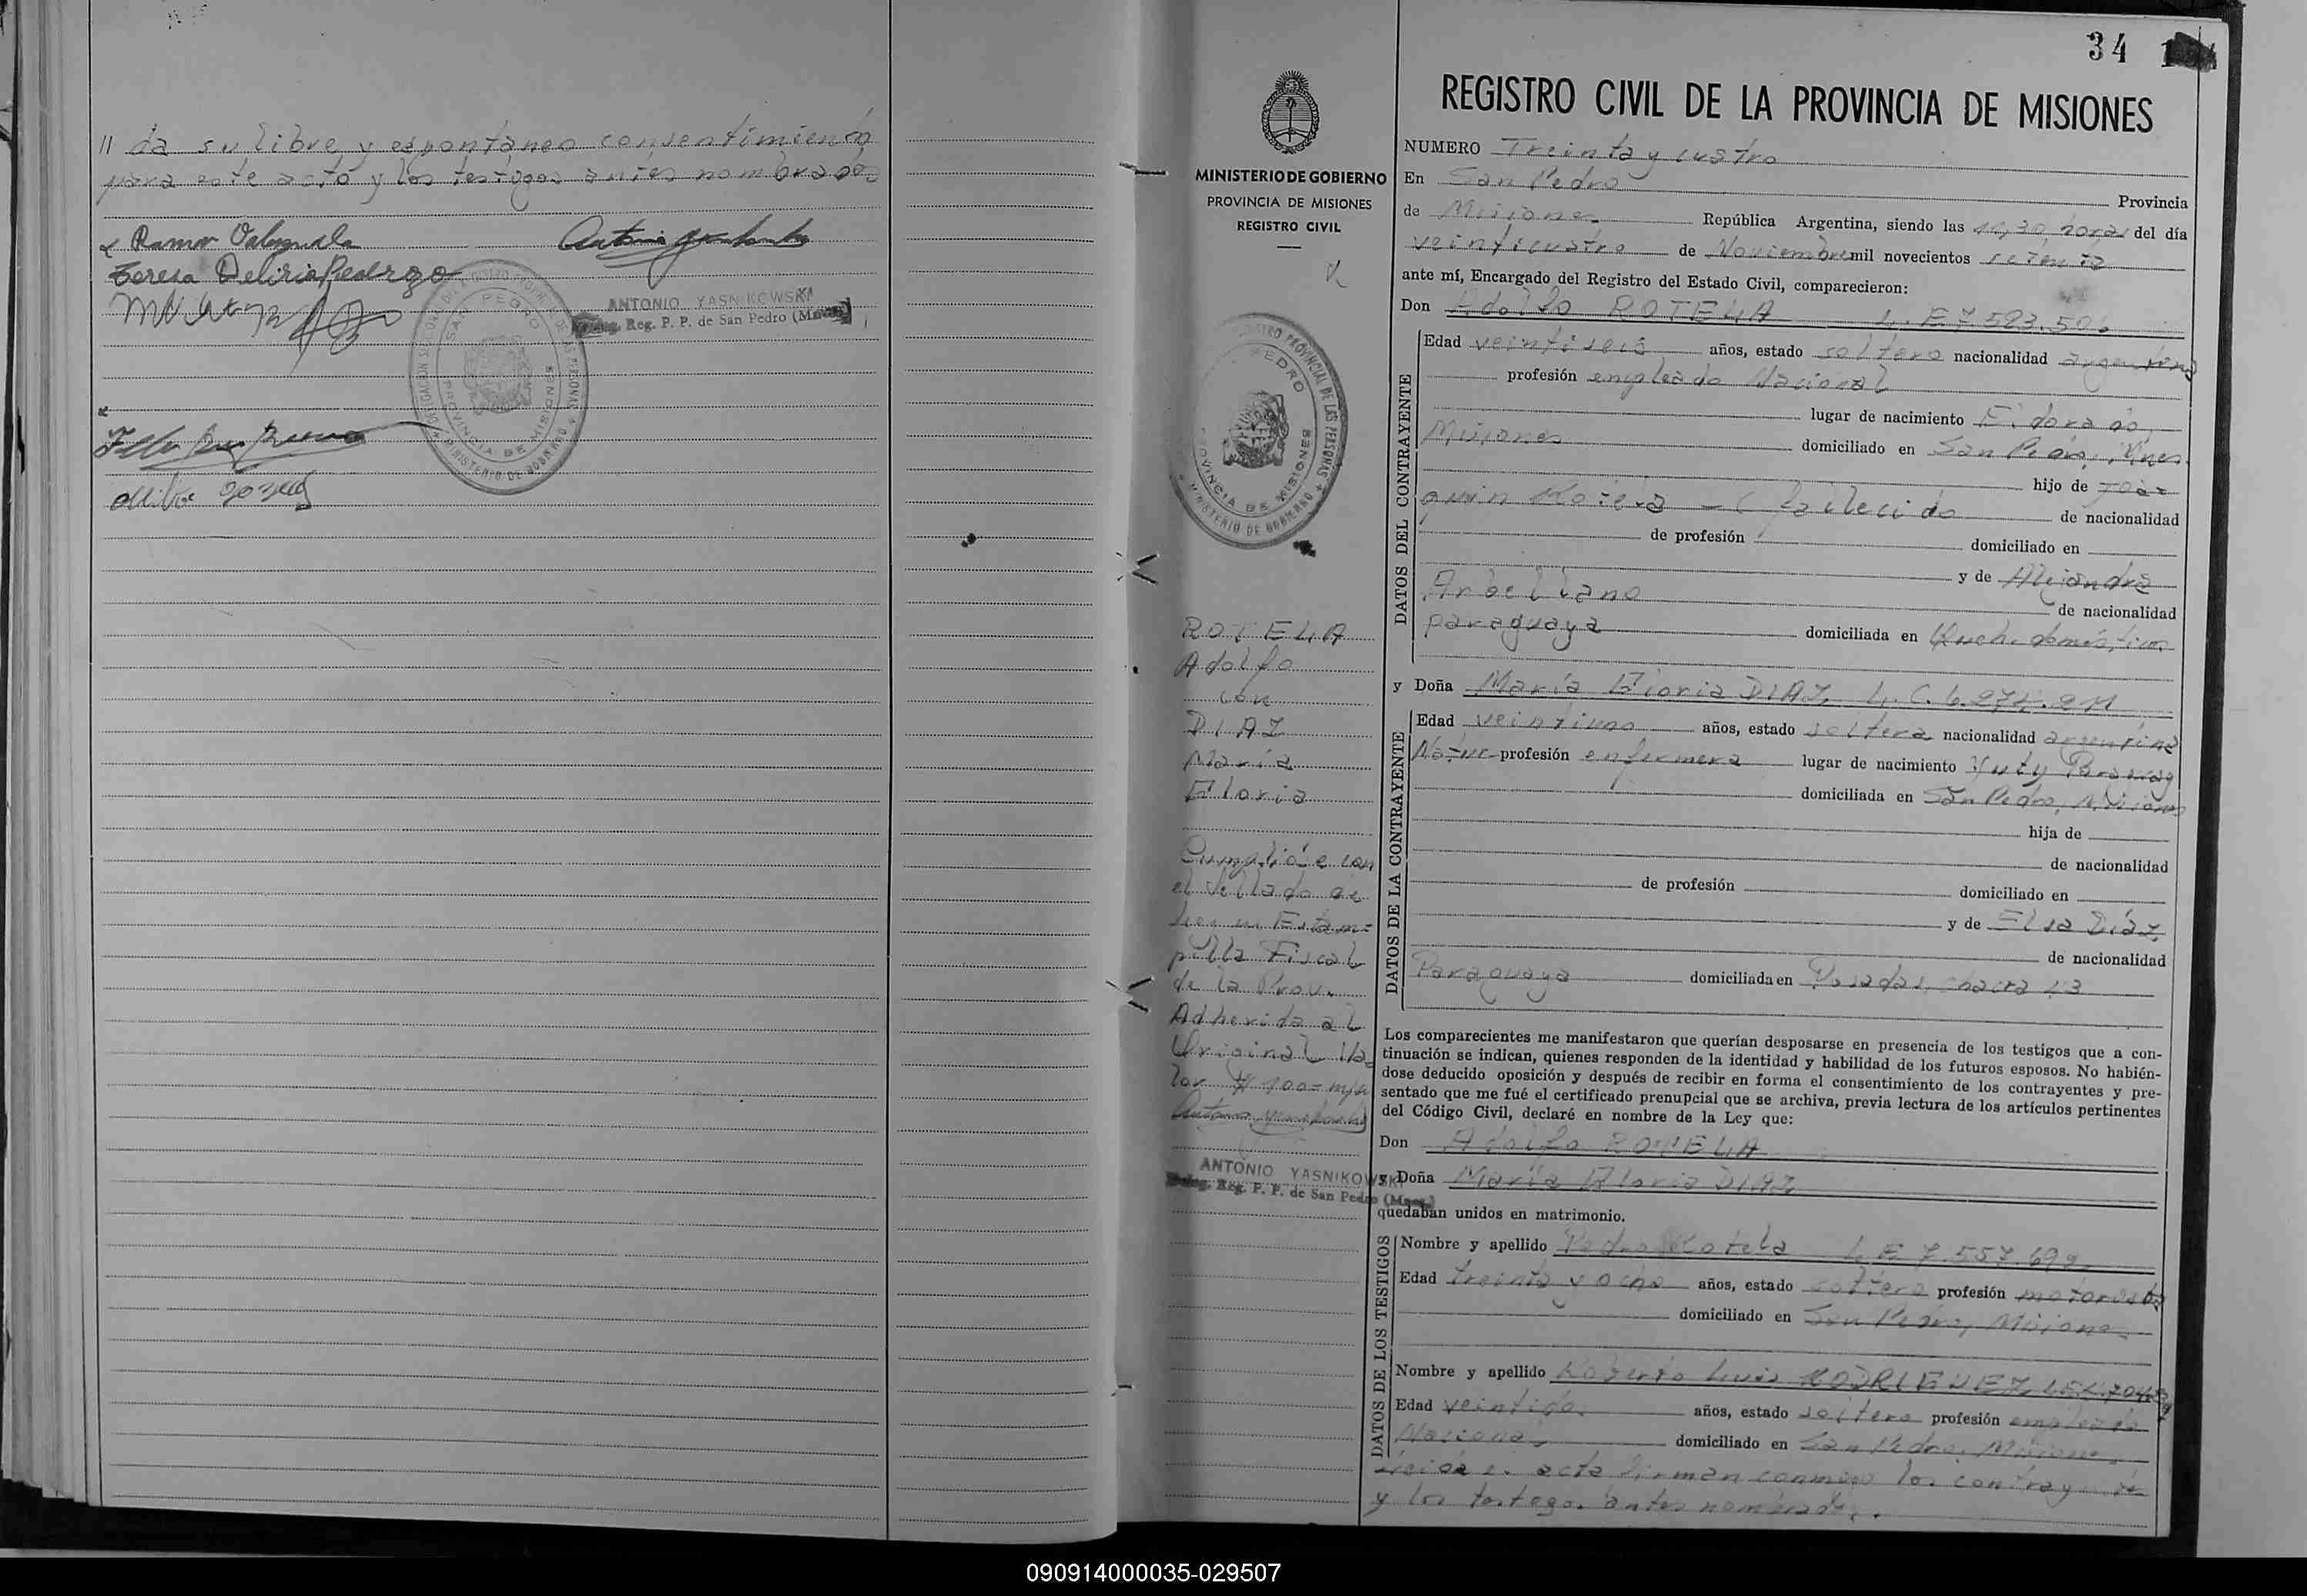 // da su libre y espontaneo consentimiento
para este acto y los testigos antes nombrados
Ramon Valenzuela
Teresa Delicia Pedrozo
ANTONIO YASNIKOWSKI
Deleg. Reg. P. P. de San Pedro (Mnes.)
SAN PEDRO
PROVINCIA DE MISIONES
MINISTERIO DE GOBIERNO
34
REGISTRO CIVIL DE LA PROVINCIA DE MISIONES
MINISTERIO DE GOBIERNO
PROVINCIA DE MISIONES
REGISTRO CIVIL
REGISTRO PROVINCIAL DE LAS PERSONAS
PROVINCIA DE MISIONES
MINISTERIO DE GOBIERNO
ROTELA
Adolfo
con
DIAZ
María
Gloria
Cumplióse con
el Sellado de
Ley en Estam=
pilla Fiscal
de la Prov.
Adherida al
Original Va=
lor $ 100= m/n
ANTONIO YASNIKOWSKI
Deleg. Reg. P. P. de San Pedro (Mnes.)
NUMERO Treinta y cuatro
En San Pedro Provincia
de Misiones República Argentina, siendo las 11,30 horas del día
veinticuatro de Noviembre mil novecientos setenta
ante mí, Encargado del Registro del Estado Civil, comparecieron:
Don Adolfo ROTELA L. E 7.523.506
DATOS DEL CONTRAYENTE
Edad veintiseis años, estado soltero nacionalidad argentina
profesión empleado Nacional
lugar de nacimiento Eldorado,
Misiones domiciliado en San Pedro, Mnes.
hijo de Joa=
quin Rotela - (fallecido de nacionalidad
de profesión domiciliado en
y de Alejandra
Arbellano de nacionalidad
paraguaya domiciliada en Queh. domésticos
y Doña María Gloria DIAZ L. C. 6.274.211
DATOS DE LA CONTRAYENTE
Edad veintiuno años, estado soltera nacionalidad argentina
Natur profesión enfermera lugar de nacimiento Yuty Paraguay
domiciliada en San Pedro, Misiones
hija de
de nacionalidad
de profesión domiciliado en
y de Elsa Díaz,
de nacionalidad
Paraguaya domiciliada en Posadas, chacra 13
Los comparecientes me manifestaron que querían desposarse en presencia de los testigos que a con-
tinuación se indican, quienes responden de la identidad y habilidad de los futuros esposos. No habién-
dose deducido oposición y después de recibir en forma el consentimiento de los contrayentes y pre-
sentado que me fué el certificado prenupcial que se archiva, previa lectura de los artículos pertinentes
del Código Civil, declaré en nombre de la Ley que:
Don Adolfo ROTELA
y Doña María Gloria DIAZ
quedaban unidos en matrimonio.
DATOS DE LOS TESTIGOS
Nombre y apellido Pedro Rotela L E 7.557.699
Edad treinta y ocho años, estado soltero profesión motorista
domiciliado en San Pedro, Misiones
Nombre y apellido Roberto Luis RODRIGUEZ
Edad veintidos años, estado soltero profesión empleado
Nacional domiciliado en San Pedro, Misiones
acta firman conmigo los contrayentes
y los testigos antes nombrados.
090914000035-029507